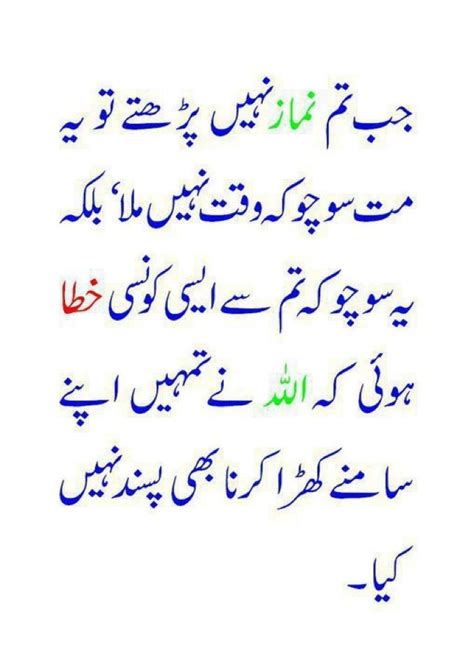 جب تم نماز نہیں پڑھتے تو یہ
مت سوچو کہ وقت نہیں ملا، بلکہ
یہ سوچو کہ تم سے ایسی کونسی خطا
ہوئی کہ اللہ نے تمہیں اپنے
سامنے کھڑا کرنا بھی پسند نہیں
کیا۔